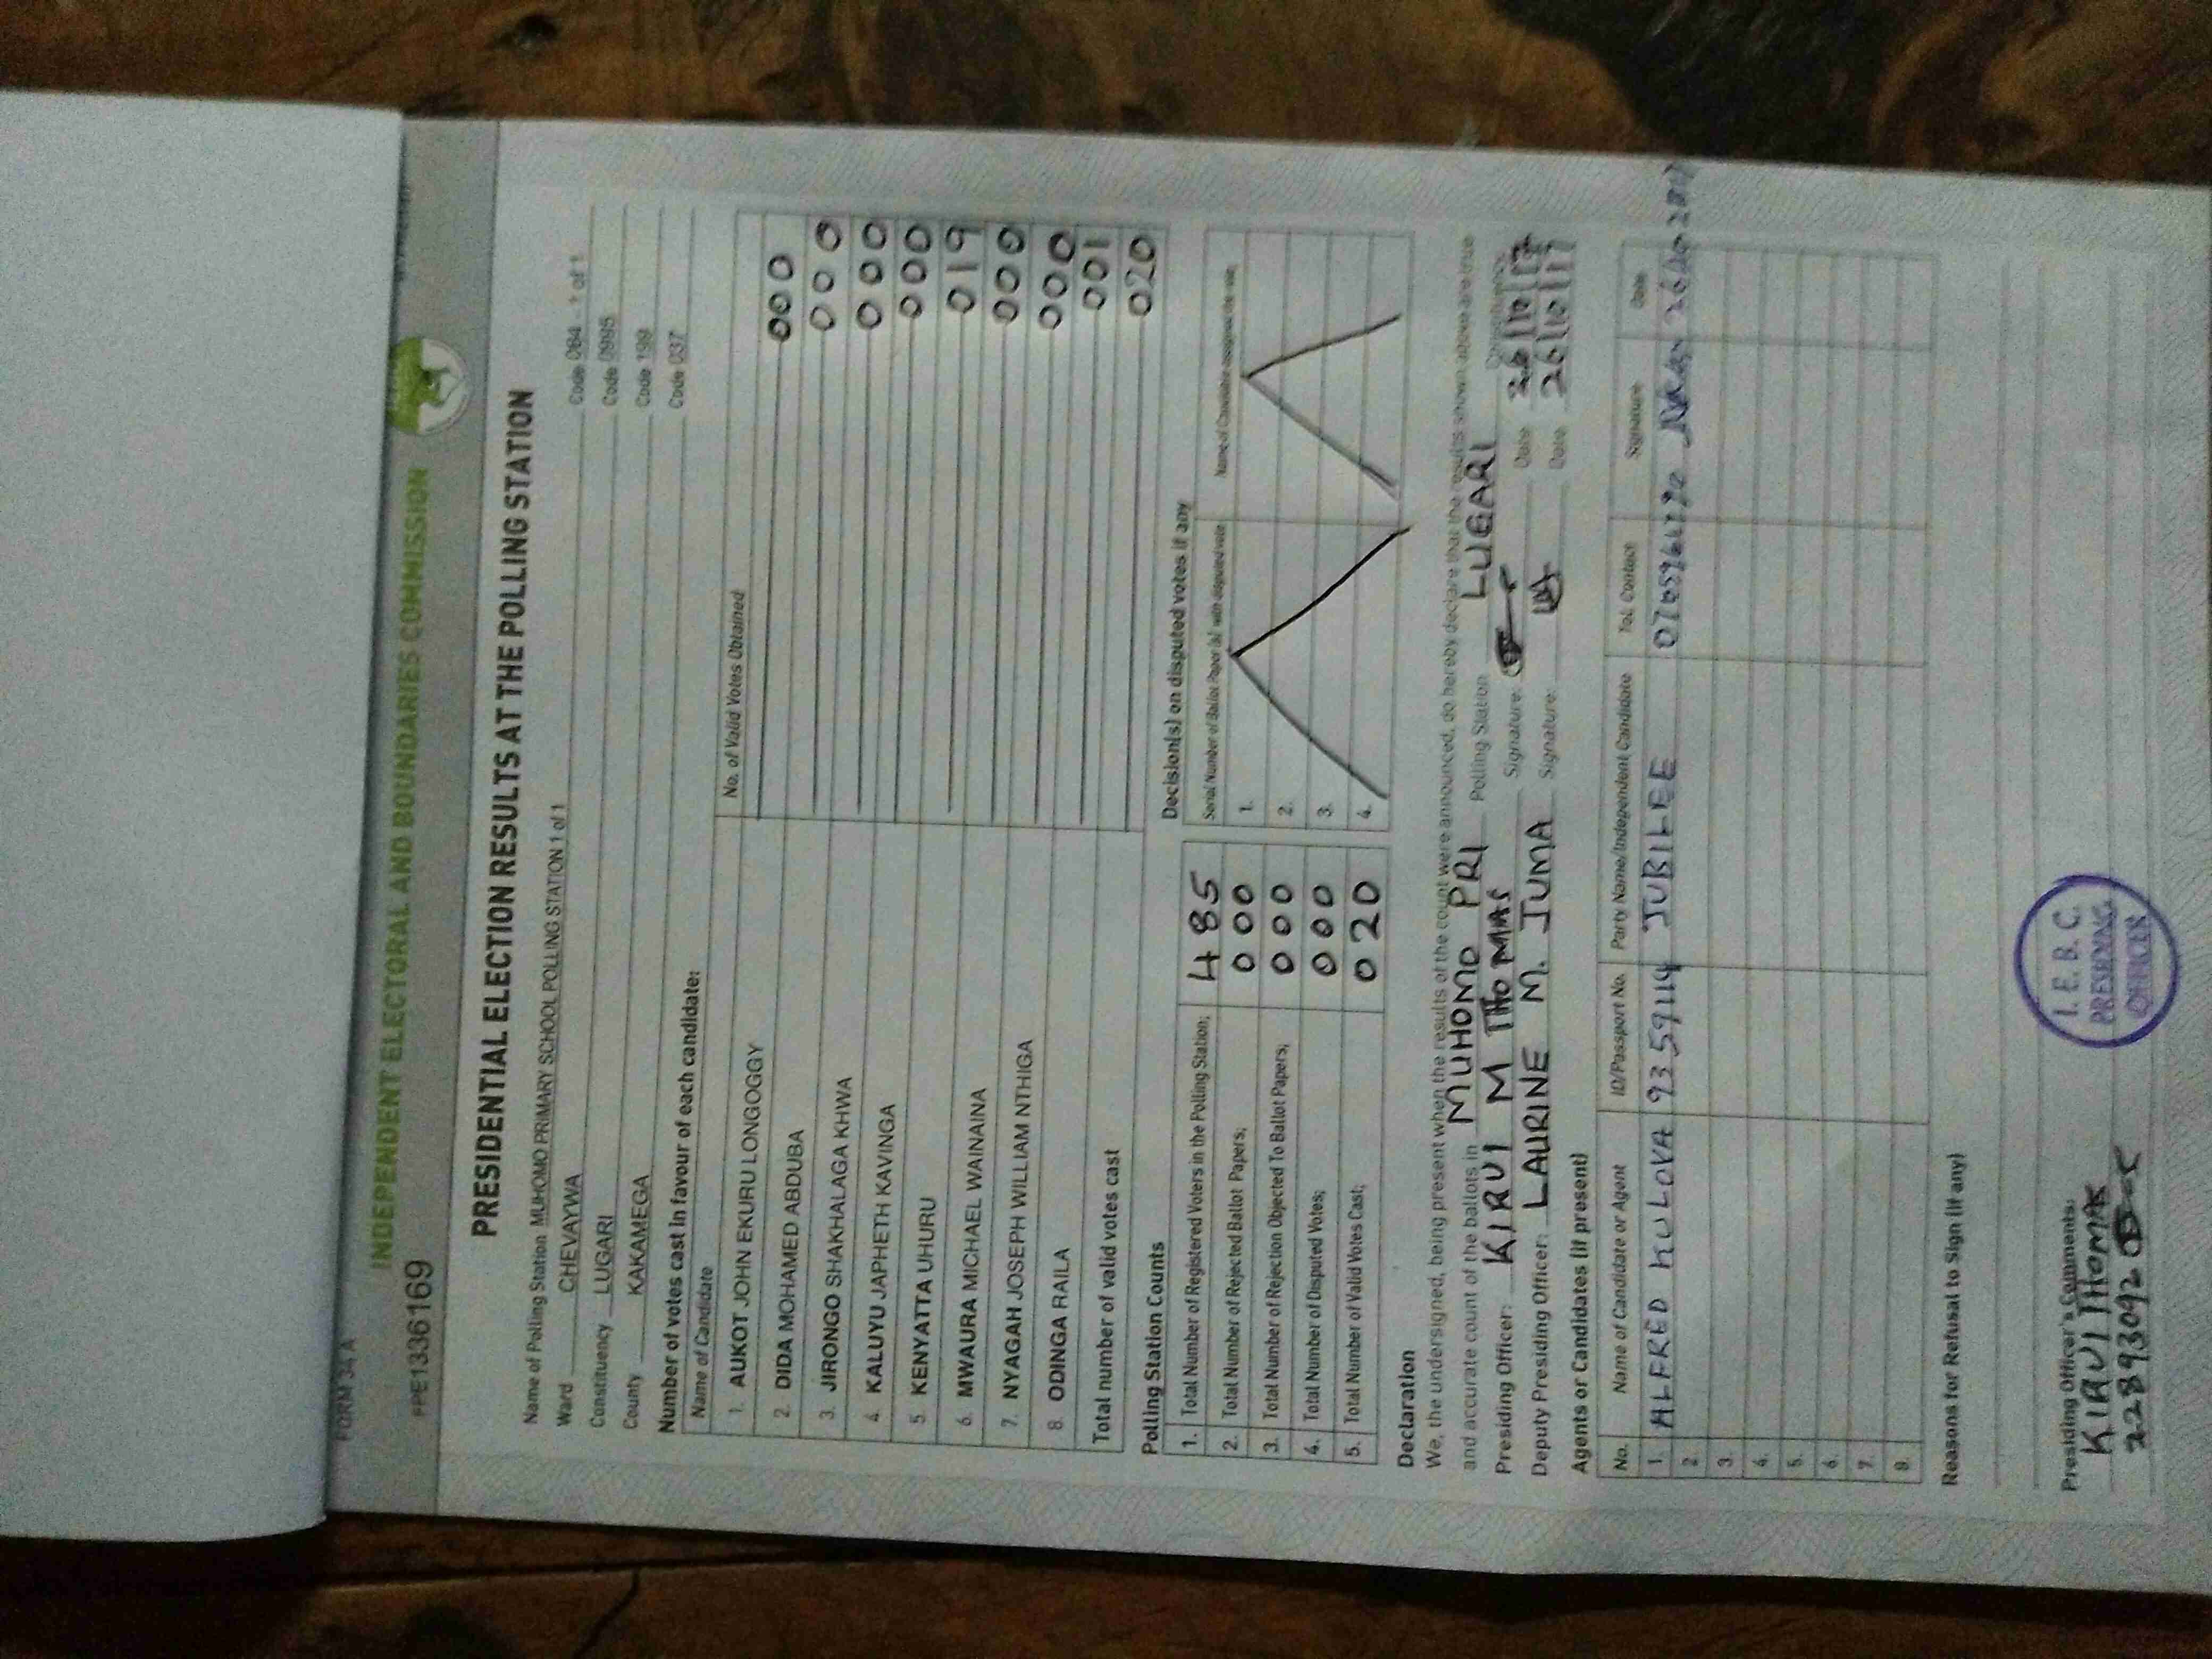 FORM 34 A
INDEPENDENT ELECTORAL AND BOUNDARIES COMMISSION
PPE1336169
PRESIDENTIAL ELECTION RESULTS AT THE POLLING STATION
Name of Polling Station MUHOMO PRIMARY SCHOOL POLLING STATION 1 of 1 Code 084 - 1 of 1
Ward CHEVAYWA Code 0995
Constituency LUGARI Code 199
County KAKAMEGA Code 037
Number of votes cast in favour of each candidate:
Name of Candidate No. of Valid Votes Obtained
1. AUKOT JOHN EKURU LONGOGGY 000
2. DIDA MOHAMED ABDUBA 000
3. JIRONGO SHAKHALAGA KHWA 000
4. KALUYU JAPHETH KAVINGA 000
5. KENYATTA UHURU 019
6. MWAURA MICHAEL WAINAINA 000
7. NYAGAH JOSEPH WILLIAM NTHIGA 000
8. ODINGA RAILA 001
Total number of valid votes cast 020
Polling Station Counts
1. Total Number of Registered Voters in the Polling Station; 485
2. Total Number of Rejected Ballot Papers; 000
3. Total Number of Rejection Objected To Ballot Papers; 000
4. Total Number of Disputed Votes; 000
5. Total Number of Valid Votes Cast; 020
Decision(s) on disputed votes if any
Serial Number of Ballot Paper (s) with disputed vote Name of Candidate
1.
2.
3.
4.
Declaration
We, the undersigned, being present when the results of the count were announced, do hereby declare that the results shown above are true
and accurate count of the ballots in MUHOMO PRI Polling Station LUGARI
Presiding Officer: KIRUI M THOMAS Signature: Date 26/10/17
Deputy Presiding Officer: LAURINE M. JUMA Signature: Date 26/10/17
Agents or Candidates (if present)
No. Name of Candidate or Agent ID/Passport No. Party Name/Independent Candidate Tel. Contact Signature Date
1. ALFRED KULOVA 9359114 JUBILEE
2.
3.
4.
5.
6.
7.
8.
Reasons for Refusal to Sign (if any)
Presiding Officer's Comments:
KIRUI THOMAS
22893092
I. E. B. C.
PRESIDING
OFFICER